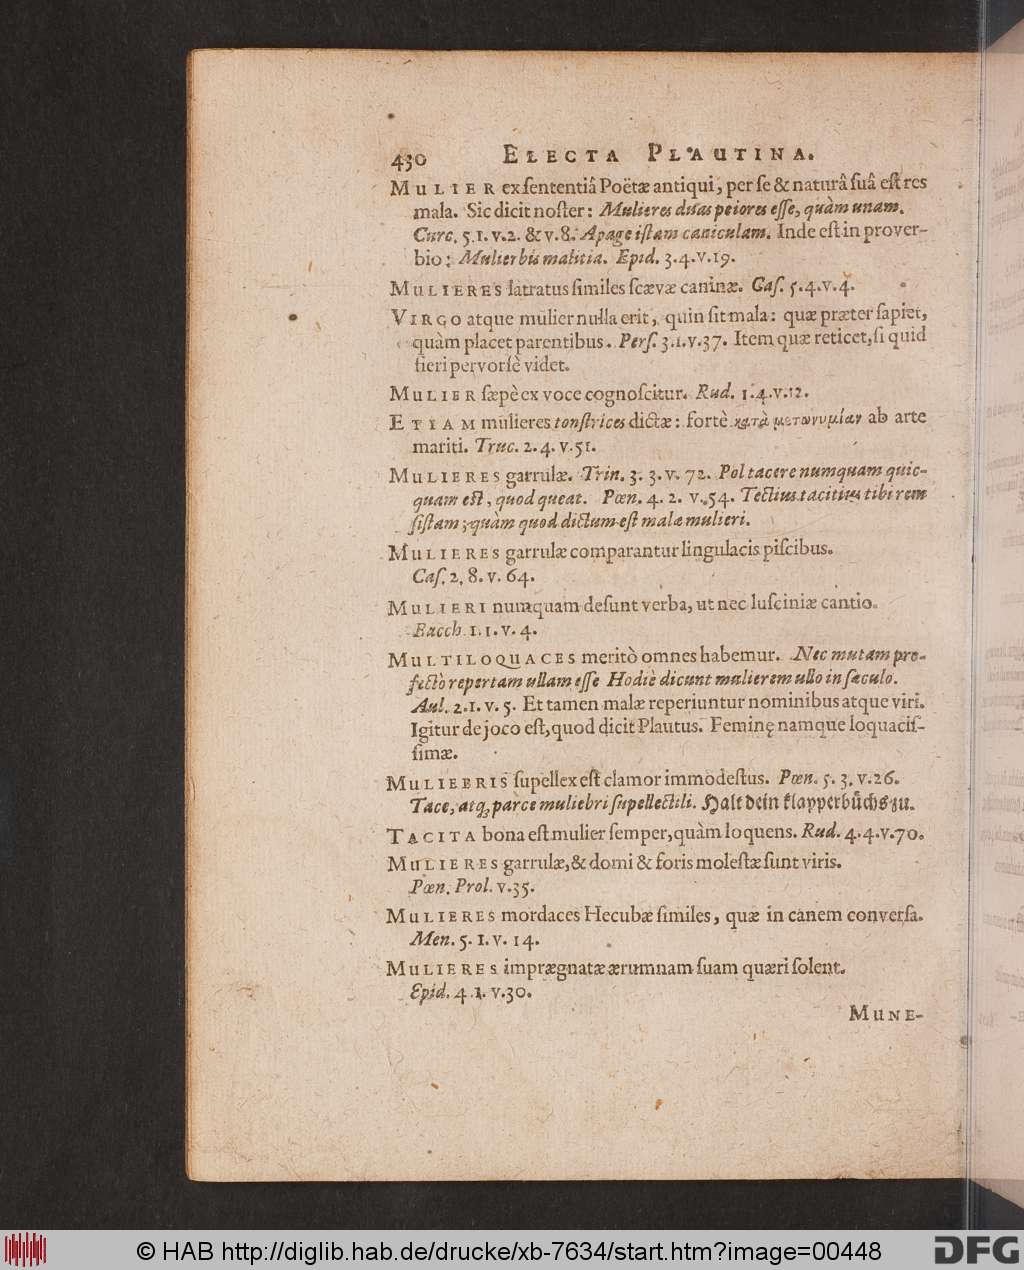 430 ELECTA PLAUTINA.
MULIER ex ſententiâ Poëtæ antiqui, per ſe & naturâ ſuâ eſt res
mala. Sic dicit noſter: Mulieres duas peiores eſſe, quàm unam.
Curc. 5. 1. v. 2. & v. 8. Apage iſtam caniculam. Inde eſt in prover-
bio: Mulier bis malitia. Epid. 3. 4. v. 19.
MULIERES latratus ſimiles ſcævæ caninæ. Caſ. 5. 4. v. 4.
VIRGO atque mulier nulla erit, quin ſit mala: quæ præter ſapiet,
quàm placet parentibus. Perſ. 3. 1. v. 37. Item quæ reticet, ſi quid
fieri pervorſè videt.
MULIER ſæpè ex voce cognoſcitur. Rud. 1. 4. v. 12.
ETIAM mulieres tonſtrices dictæ: fortè κατὰ μετωνυμίαν ab arte
mariti. Truc. 2. 4. v. 51.
MULIERES garrulæ. Trin. 3. 3. v. 72. Pol tacere numquam quic-
quam eſt, quod queat. Pœn. 4. 2. v. 54. Tectius tacitius tibi rem
ſiſtam; quàm quod dictum eſt malæ mulieri.
MULIERES garrulæ comparantur lingulacis piſcibus.
Caſ. 2, 8. v. 64.
MULIERI numquam deſunt verba, ut nec luſciniæ cantio.
Bacch. 1. 1. v. 4.
MULTILOQUACES meritò omnes habemur. Nec mutam pro-
fectò repertam ullam eſſe Hodiè dicunt mulierem ullo in ſæculo.
Aul. 2. 1. v. 5. Et tamen malæ reperiuntur nominibus atque viri.
Igitur de joco eſt, quod dicit Plautus. Feminę namque loquaciſ-
ſimæ.
MULIEBRIS ſupellex eſt clamor immodeſtus. Pœn. 5. 3. v. 26.
Tace, atq; parce muliebri ſupellectili. Halt dein klapperbüchs zu.
TACITA bona eſt mulier ſemper, quàm loquens. Rud. 4. 4. v. 70.
MULIERES garrulæ, & domi & foris moleſtæ ſunt viris.
Pœn. Prol. v. 35.
MULIERES mordaces Hecubæ ſimiles, quæ in canem converſa.
Men. 5. 1. v. 14.
MULIERES imprægnatæ ærumnam ſuam quæri ſolent.
Epid. 4. 1. v. 30.
MUNE-
© HAB http://diglib.hab.de/drucke/xb-7634/start.htm?image=00448
DFG